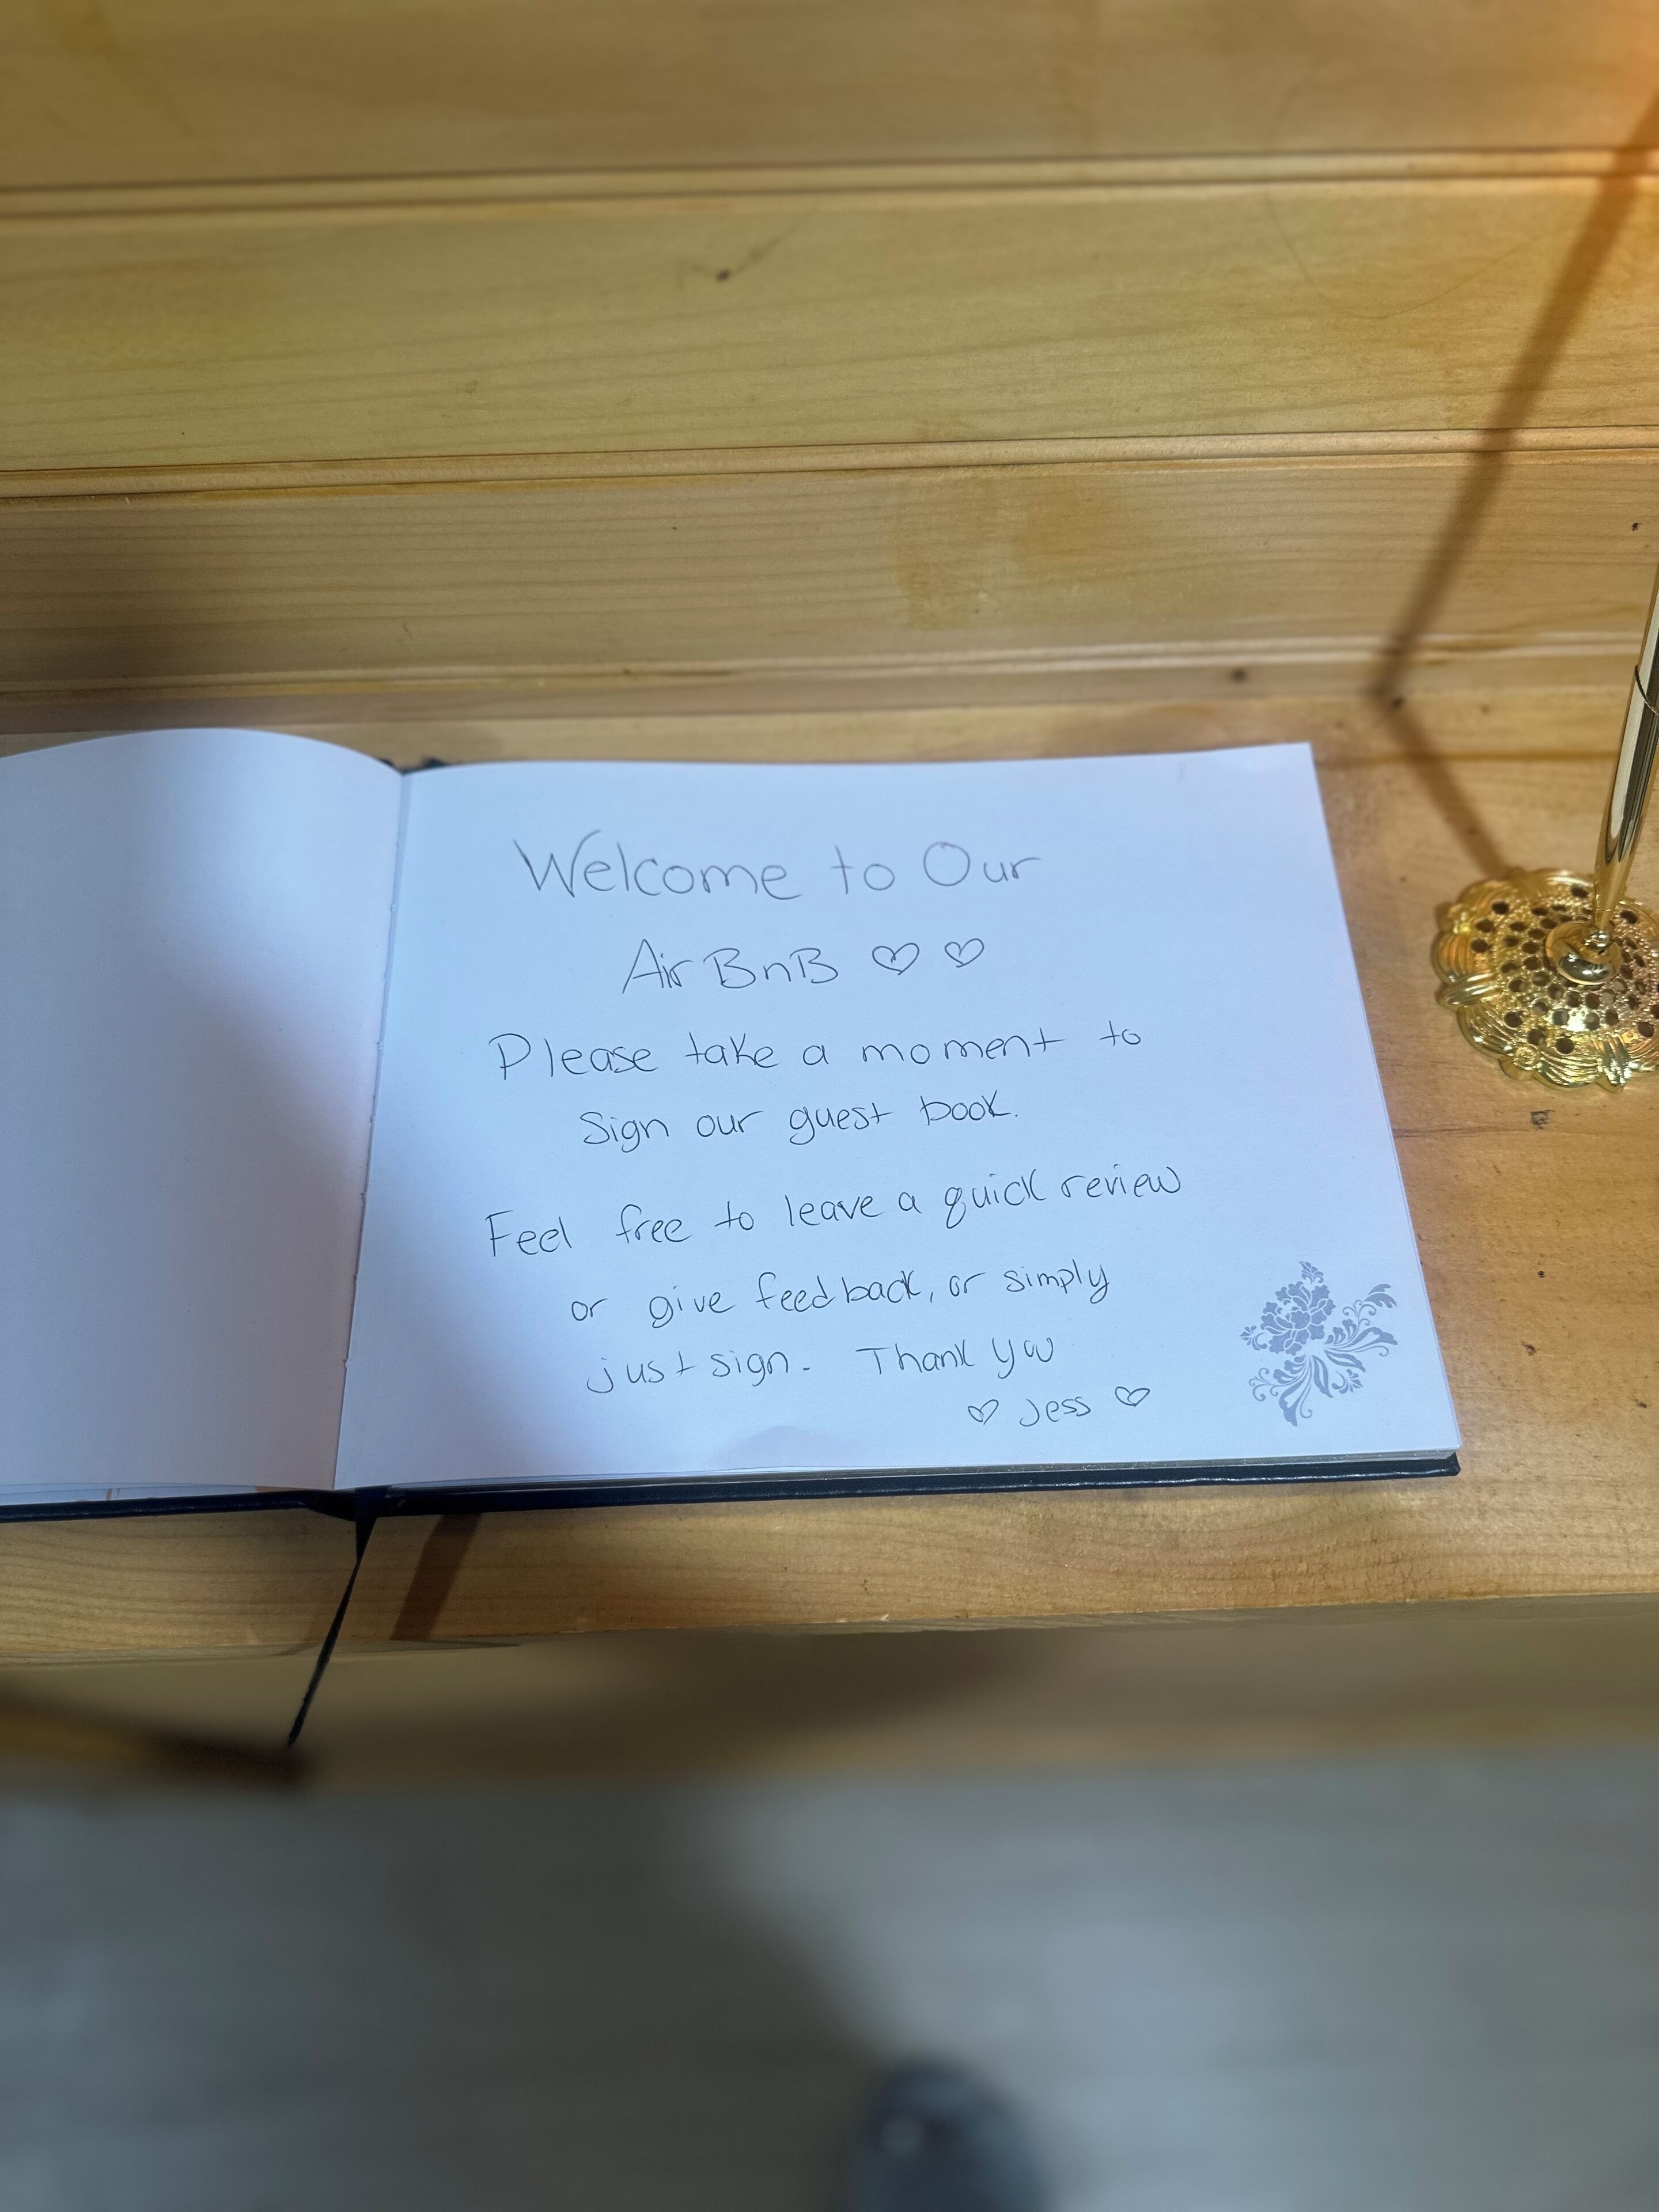 Welcome to Our
AirBnB ♡ ♡
Please take a moment to
Sign our guest book.
Feel free to leave a quick review
or give feedback, or simply
just sign. Thank you
♡ Jess ♡